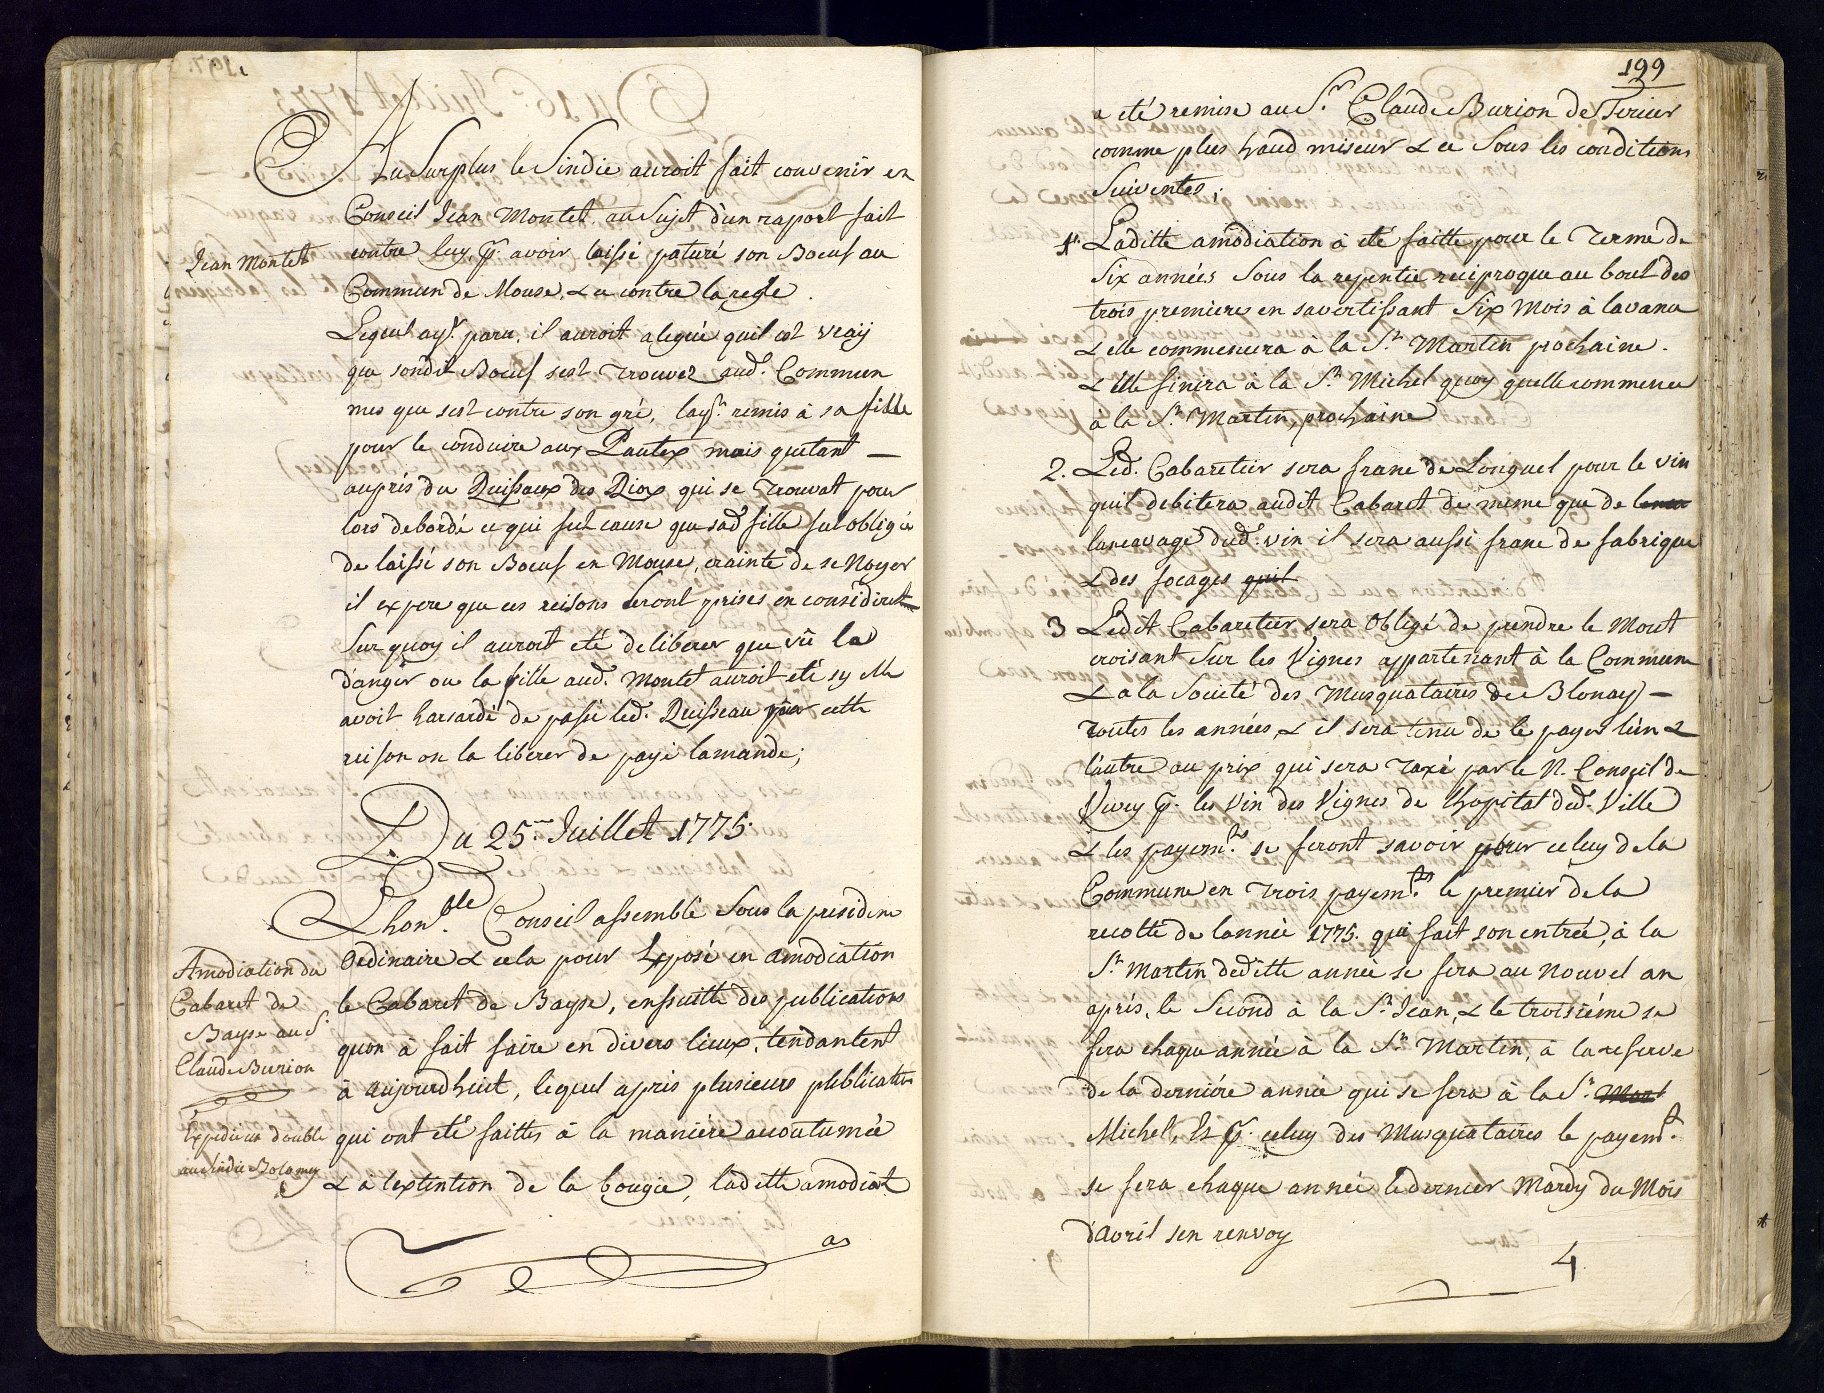 Au Surplus le Sindic auroit fait convenir en
Conseil Jean Montet, au Sujet d'un raport fait
Jean Montet
contre luy, p.r avoir laissé paturé son Boeuf au
Commun de Mouse, & ce contre la regle.
Lequel ay.t paru, il auroit alegué quil est vray
que sondit Boeuf sest trouvez aud.t Commun
mes que sest contre son gré, lay.t remis à sa fille
pour le conduire aux Pautex mais quetant —
auprés du Ruissaux des Riox qui se trouvat pour
lors debordé ce qui fut cause que sad.e fille fut obligée
de laissé son Boeuf en Mouse, crainte de se Noyer
il expere que ces reisons seront prises en considerat
Sur quoy il auroit eté deliberer que vû le
dangér ou la fille aud.t Montet auroit eté sy elle
avoit harsardé de passé led.t Ruisseau pour cette
reison on la liberer de payé lamande;
Du 25.me Juillet 1775.
Lhon.ble Conseil assemblé Sous la presidence
Amodiation du
Cabaret de
Bayse au S.r
Claude Burion
Expedié un double
au Sindic Bolomey
Ordinaire & cela pour Exposé en amodiation
le Cabaret de Bayse, ensuitte des publications
quon à fait faire en divers lieux, tendantent
à aujourdhuit, lequel aprés plusieurs publicat.s
qui ont eté faittes à la maniére accoutumée
& a lextention de la bougie, laditte amodiat
a
199
a eté remise au S.r Claude Burion de Tercier
comme plus haud miseur & ce Sous les conditions
Suiventes;
1.o Laditte amodiation à eté faitte pour le terme de
Six années Sous la repentie reciproque au bout des
trois premieres en savertissant Six Mois à lavance
& elle commencera à la S.t Martin prochaine.
& elle finira à la S.t Michel quoy quelle commence
à la S.t Martin, prochaine
2. Led. Cabaretier sera franc de Longuel pour le vin
quil debitera audit Cabaret de meme que de
lancavage dud.t vin il sera aussi franc de fabrique
& des focages quil
3 Ledit Cabaretier sera Obligé de prendre le Mout
croisant Sur les Vignes appartenant à la Commune
& a la Societé des Musquataires de Blonay —
toutes les années, & il sera tenu de le payer lún &
lautre au prix qui sera taxé par le N. Conseil de
Vevey p.r les Vin des Vignes de lhopital de d.e Ville
& les payem.ts se feront savoir pour celuy de la
Commune en trois payem.ts le premier de la
recolte de lannée 1775. qui fait son entrée, à la
S.t Martin deditte année se fera au Nouvel an
aprés, le Second à la S.t Jean, & le troisiéme se
fera chaque année à la S.t Martin, à la reserve
de la derniére année qui se fera à la S.t Mart
Michel, Et p.r celuy des Musquataires le payem.t
se fera chaque année le dernier Mardy du Mois
d'avril sen renvoy
4